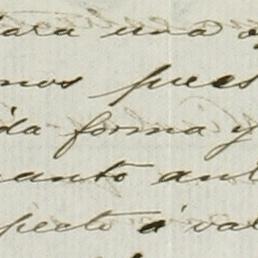 para una o
nos pues
da forma y
uanto ant
specto á val